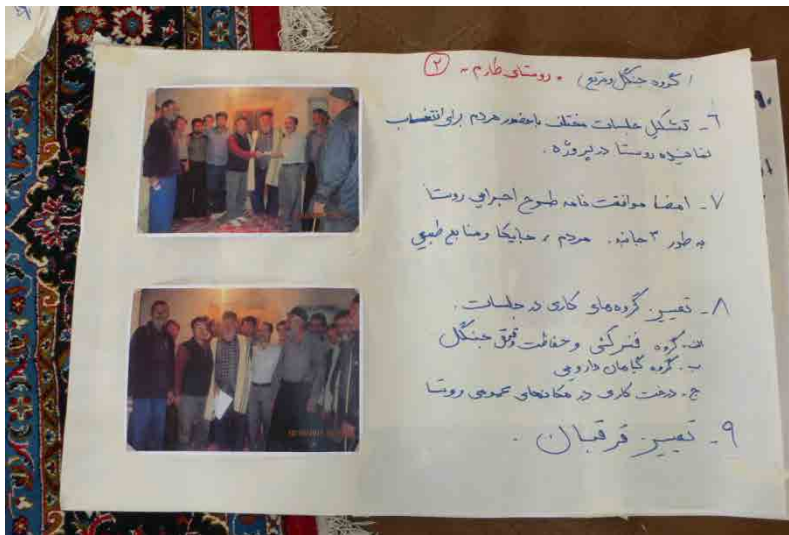 ( گروه جنگل و مرتع ) • روستای طارم • ②
۶- تشکیل جلسات مختلف با حضور مردم برای انتخاب
نماینده روستا در پروژه .
۷- امضا موافقت نامه طرح اجرایی روستا
به طور ۳ جانبه . مردم ، جایکا و منابع طبیعی
۸- تعیین گروه‌های کاری در جلسات .
الف- گروه فنس کشی و حفاظت و قرق جنگل
ب- گروه گیاهان دارویی
ج- درخت کاری در مکانهای عمومی روستا
۹- تعیین قرقبان .